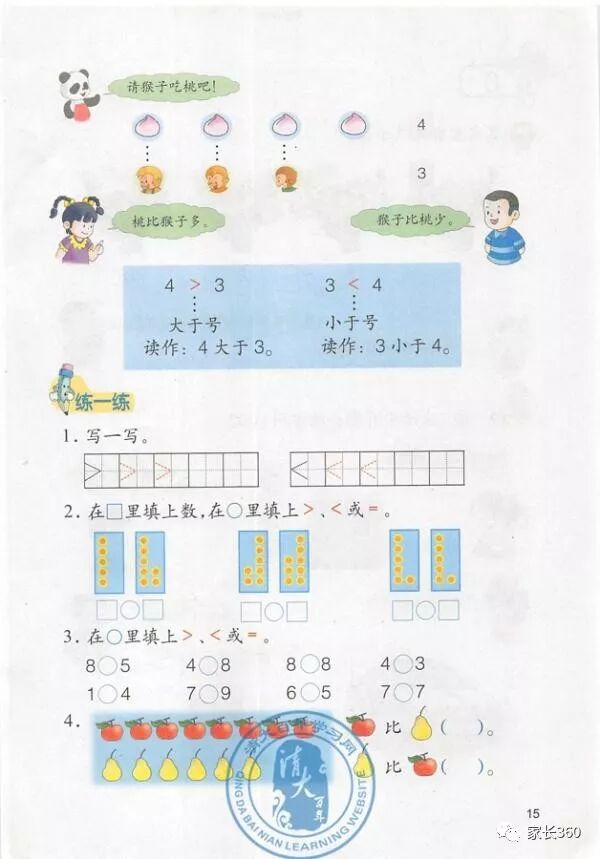 请猴子吃桃吧!
4
3
桃比猴子多。
猴子比桃少。
4 > 3
3 < 4
大于号
小于号
读作：4 大于 3。
读作：3 小于 4。
练一练
1. 写一写。
> > >
< < <
2. 在□里填上数,在○里填上 >、< 或 = 。
□○□ □○□ □○□
3. 在○里填上 >、< 或 = 。
8○5 4○8 8○8 4○3
1○4 7○9 6○5 7○7
4.
比 ( )。
比 ( )。
清大百年学习网
清大
百年
QINGDABAINIAN LEARNING WEBSITE
15
家长360